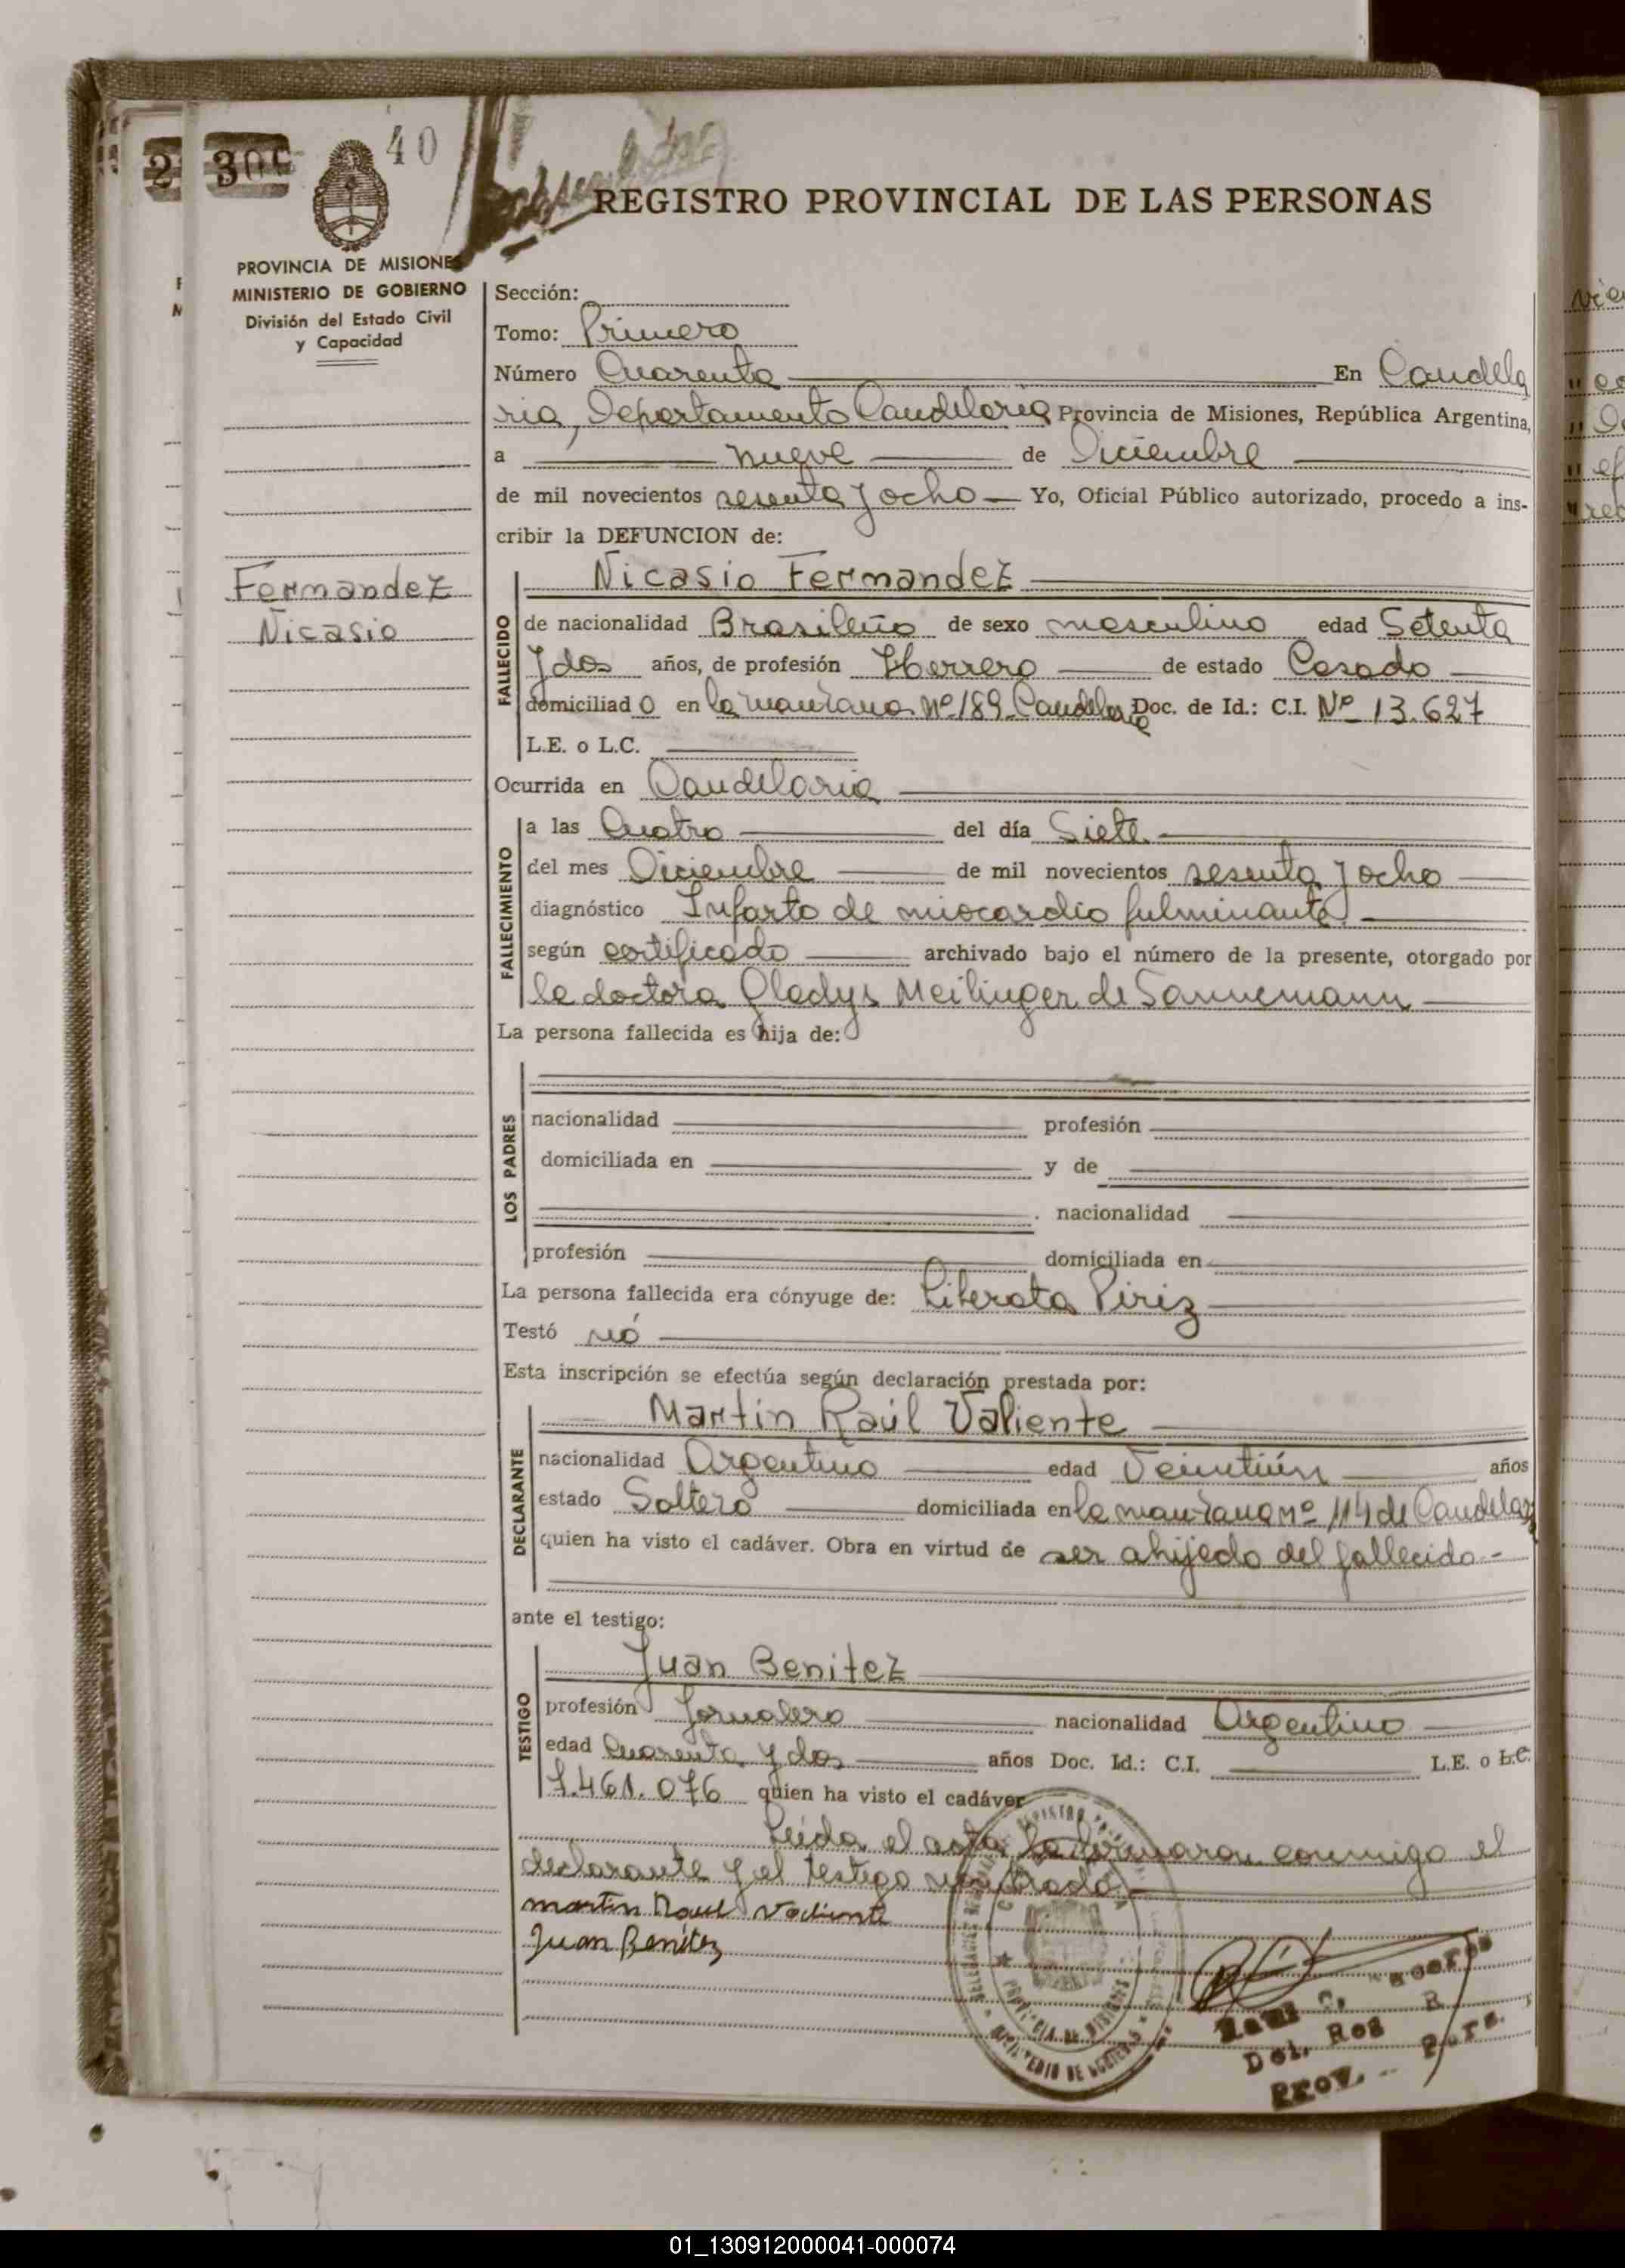 40
REGISTRO PROVINCIAL DE LAS PERSONAS
PROVINCIA DE MISIONES
MINISTERIO DE GOBIERNO
División del Estado Civil
y Capacidad
Fernandez
Nicasio
Sección:
Tomo: Primero
Número Cuarenta En Candela
ria, Departamento Candelaria Provincia de Misiones, República Argentina,
a nueve de Diciembre
de mil novecientos sesenta y ocho Yo, Oficial Público autorizado, procedo a ins-
cribir la DEFUNCION de:
FALLECIDO
Nicasio Fernandez
de nacionalidad Brasileño de sexo masculino edad Setenta
y dos años, de profesión Herrero de estado Casado
domiciliado en la manzana Nº 189 Candelaria Doc. de Id.: C.I. Nº 13.627
L.E. o L.C.
Ocurrida en Candelaria
FALLECIMIENTO
a las Cuatro del día Siete
del mes Diciembre de mil novecientos sesenta y ocho
diagnóstico Infarto de miocardio fulminante
según certificado archivado bajo el número de la presente, otorgado por
la doctora Gladys Meilinger de Sannemann
La persona fallecida es hija de:
LOS PADRES
nacionalidad profesión
domiciliada en y de
nacionalidad
profesión domiciliada en
La persona fallecida era cónyuge de: Liberata Piriz
Testó nó
Esta inscripción se efectúa según declaración prestada por:
DECLARANTE
Martin Raúl Valiente
nacionalidad Argentino edad Veintiún años
estado Soltero domiciliada en la manzana nº 114 de Candelar
quien ha visto el cadáver. Obra en virtud de ser ahijado del fallecido-
ante el testigo:
TESTIGO
Juan Benitez
profesión Jornalero nacionalidad Argentino
edad Cuarenta y dos años Doc. Id.: C.I. L.E. o L.C.
7.461.076 quien ha visto el cadáver
Leída el acta la firmaron conmigo el
declarante y el testigo nombrado
martin Raul Valiente
Juan Benitez
PROVINCIA DE MISIONES
MINISTERIO DE GOBIERNO
Del. Reg
Prov. Pers.
01_130912000041-000074